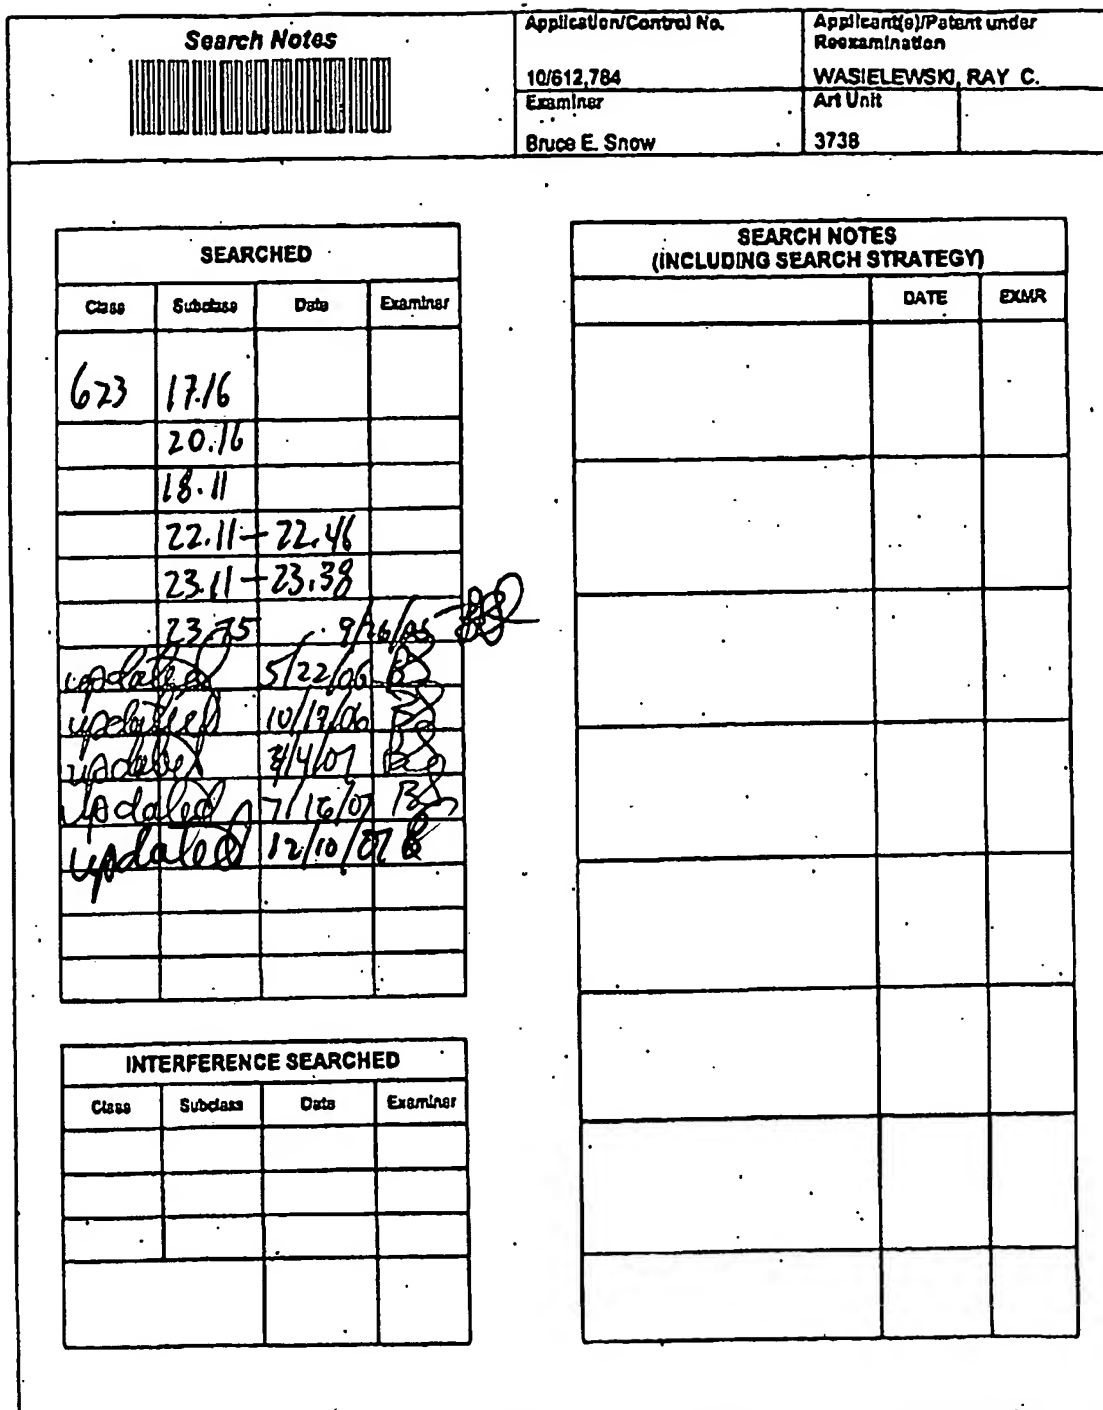 Search Notes
Application/Control No.
10/612,784
Applicant(s)/Patent under
Reexamination
WASIELEWSKI, RAY C.
Examiner
Bruce E. Snow
Art Unit
3738
SEARCHED
Class Subclass Date Examiner
623 17.16
20.16
18.11
22.11 - 22.46
23.11 - 23.38
23.75 9/26/05
updated 5/22/06 BS
updated 10/19/06 BS
updated /4/07 BS
updated 7/16/07 BS
updated 12/10/07
INTERFERENCE SEARCHED
Class Subclass Date Examiner
SEARCH NOTES
(INCLUDING SEARCH STRATEGY)
DATE EXMR